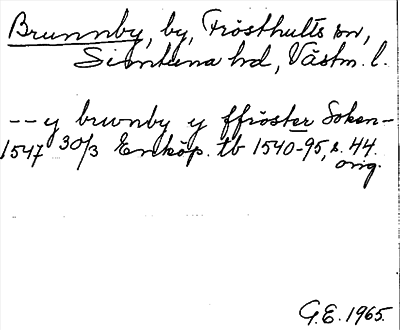 Brunnby, by, Frösthults sn,
Simtuna hd, Västm. l.
-- y brwnby y ffröster Soken -
1547 30/3 Enköp. tb 1540-95, s. 44.
orig.
G.E. 1965.